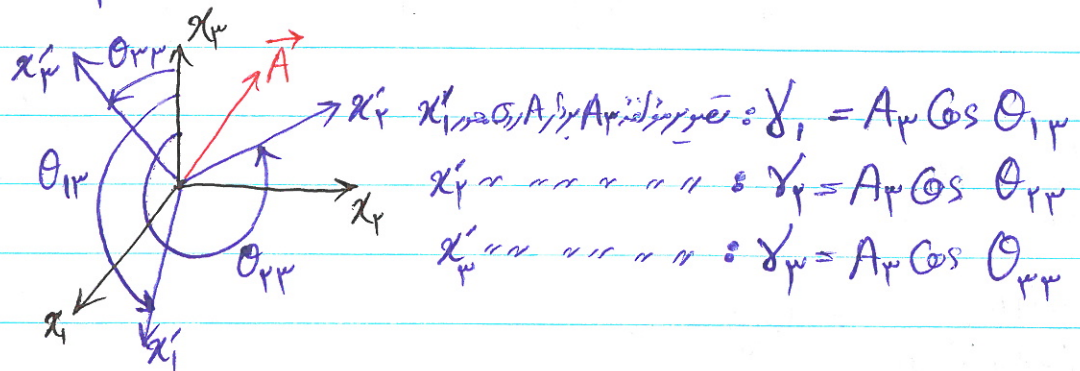 x₃
x′₃ θ₃₃ A⃗
x′₂
θ₁₃
x₂
θ₂₃
x₁
x′₁
تصویر مؤلفه A₃ بردار A روی محور x′₁ : γ₁ = A₃ Cos θ₁₃
x′₂ " " " " " " : γ₂ = A₃ Cos θ₂₃
x′₃ " " " " " " : γ₃ = A₃ Cos θ₃₃